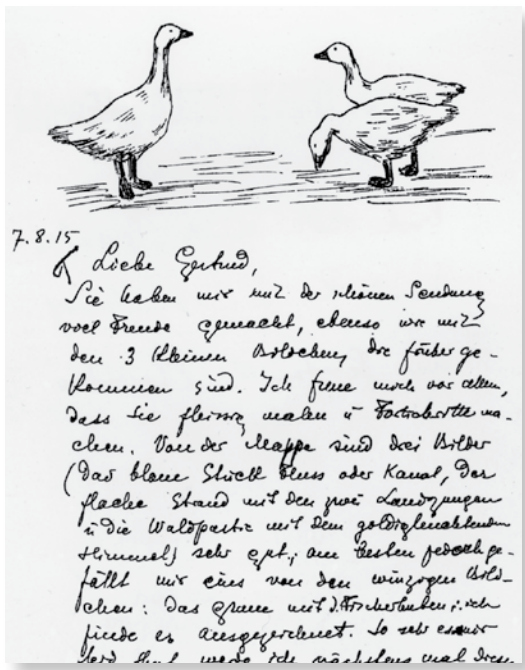 7.8.15
Liebe Gertrud,
Sie haben mir mit der schönen Sendung
viel Freude gemacht, ebenso wie mit
den 3 kleinen Bildchen, die früher ge-
kommen sind. Ich freue mich vor allem,
dass Sie fleissig malen u Fortschritte ma-
chen. Von der Mappe sind drei Bilder
(Das blaue Stück Fluss oder Kanal, Der
flache Strand mit den zwei Landzungen
u die Waldpartie mit dem goldigleuchtenden
Himmel) sehr gut; am besten jedoch ge-
fällt mir eins von den winzigen Bild-
chen: Das grüne mit d. Fischerbuben; ich
finde es ausgezeichnet. So sehr es mir
leid thut, werde ich nächstens mal